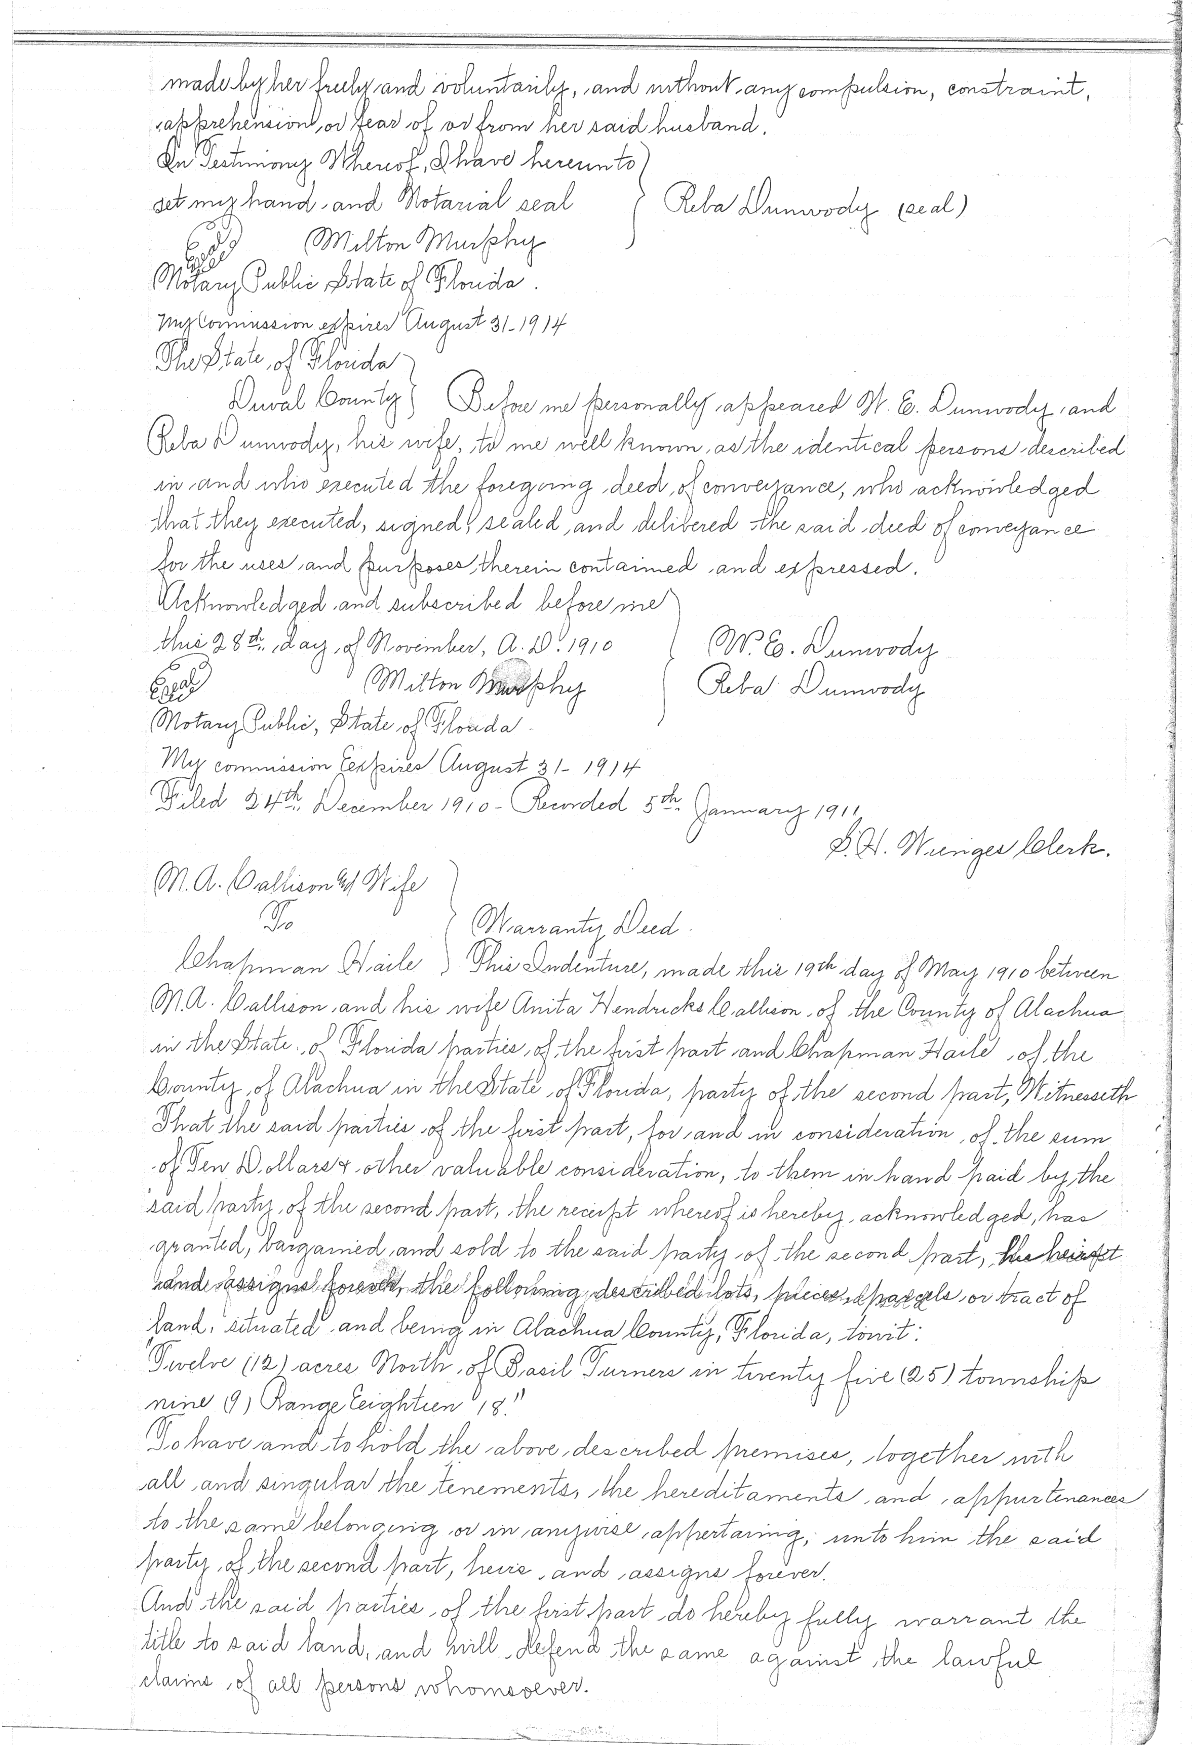 made by her freely and voluntarily, and without any compulsion, constraint,
apprehension, or fear of or from her said husband.
In Testimony Whereof, I have hereunto
set my hand and Notarial seal } Reba Dunwody (seal)
Seal Milton Murphy
Notary Public, State of Florida.
My Commission expires August 31-1914
The State of Florida
Duval County } Before me personally appeared W. E. Dunwody, and
Reba Dunwody, his wife, to me well known, as the identical persons described
in and who executed the foregoing deed of conveyance, who acknowledged
that they executed, signed, sealed, and delivered the said deed of conveyance
for the uses and purposes, therein contained and expressed.
Acknowledged and subscribed before me
this 28th day of November, A. D. 1910 } W. E. Dunwody
Seal Milton Murphy } Reba Dunwody
Notary Public, State of Florida.
My commission Eexpires August 31-1914
Filed 24th December 1910- Recorded 5th January 1911
S. H. Wienges Clerk.
M. A. Callison & Wife
To } Warranty Deed.
Chapman Haile } This Indenture, made this 19th day of May 1910 between
M. A. Callison and his wife Anita Hendricks Callison of the County of Alachua
in the State of Florida parties of the first part and Chapman Haile of the
County of Alachua in the State of Florida, party of the second part, Witnesseth
That the said parties of the first part, for and in consideration of the sum
of Ten Dollars & other valuable consideration, to them in hand paid by the
said party of the second part, the receipt whereof is hereby acknowledged, has
granted, bargained and sold to the said party of the second part, his heirs
and assigns forever, the following described lots, pieces, parcels or tract of
land, situated and being in Alachua County, Florida, towit:
"Twelve (12) acres North of Basil Turners in twenty five (25) township
nine (9) Range Eeighteen "18."
To have and to hold the above described premises, together with
all and singular the tenements, the hereditaments and appurtenances
to the same belonging or in anywise appertaining, unto him the said
party of the second part, heirs and assigns forever.
And the said parties of the first part do hereby fully warrant the
title to said land, and will defend the same against the lawful
claims of all persons whomsoever.